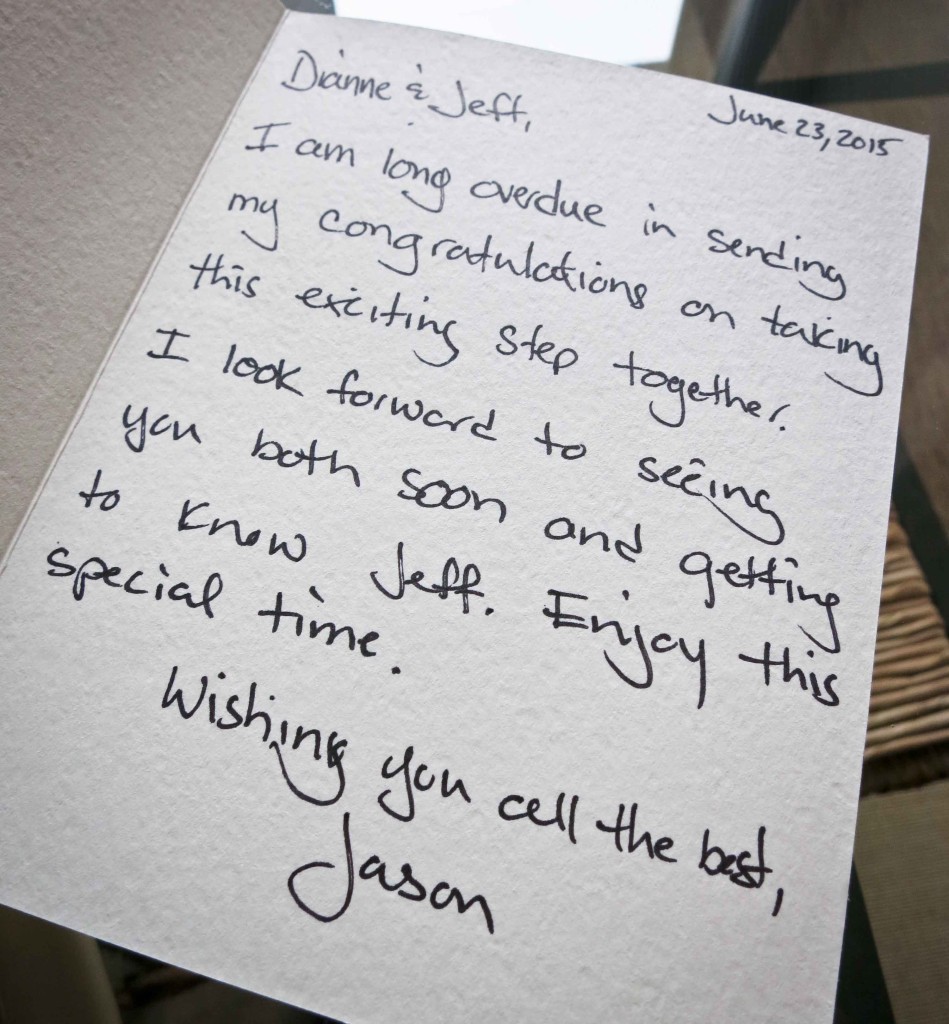 Dianne & Jeff,
June 23, 2015
I am long overdue in sending
my congratulations on taking
this exciting step together.
I look forward to seeing
you both soon and getting
to know Jeff. Enjoy this
special time.
Wishing you all the best,
Jason